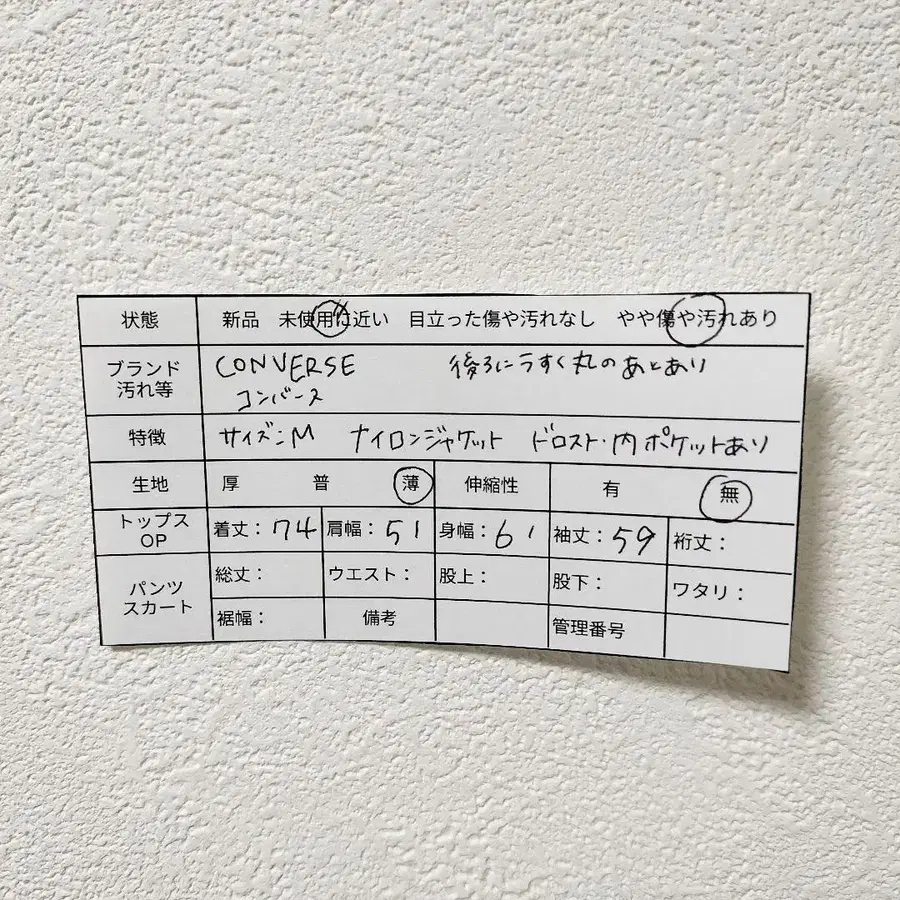 状態 新品 未使用に近い 目立った傷や汚れなし やや傷や汚れあり
ブランド 汚れ等 CONVERSE 後ろにうすく丸のあとあり
コンバース
特徴 サイズ:M ナイロンジャケット ドロスト・内ポケットあり
生地 厚 普 薄 伸縮性 有 無
トップス OP 着丈:74 肩幅:51 身幅:61 袖丈:59 裄丈:
パンツ スカート 総丈: ウエスト: 股上: 股下: ワタリ:
裾幅: 備考 管理番号